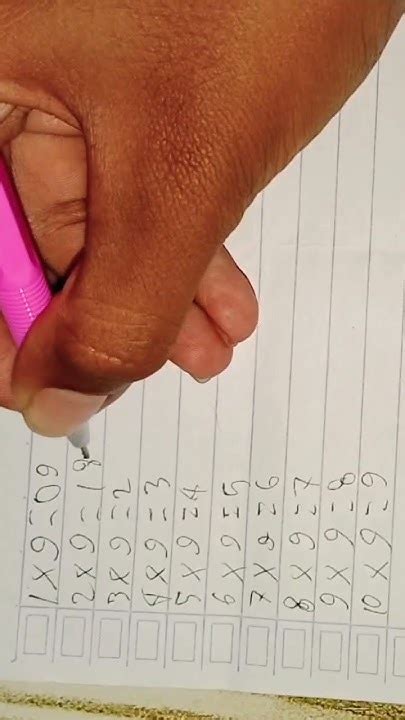 1 X 9 = 09
2 X 9 = 18
3 X 9 = 2
4 X 9 = 3
5 X 9 = 4
6 X 9 = 5
7 X 9 = 6
8 X 9 = 7
9 X 9 = 8
10 X 9 = 9